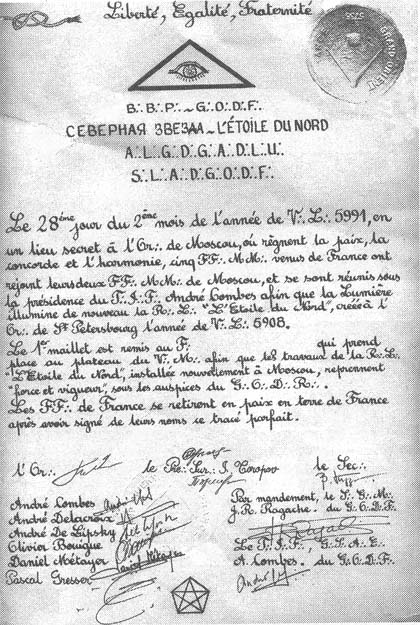 Liberté, Egalité, Fraternité
GRAND ORIENT
B∴B∴P∴~G∴O∴D∴F∴
СЕВЕРНАЯ ЗВЕЗДА ~ L'ÉTOILE DU NORD
A∴L∴G∴D∴G∴A∴D∴L∴U∴
S∴L∴A∴D∴G∴O∴D∴F∴
Le 28ème jour du 2ème mois de l'année de V∴L∴ 5991, en
un lieu secret à l'Or∴ de Moscou, où règnent la paix, la
concorde et l'harmonie, cinq FF∴MM∴ venus de France ont
rejoint leurs deux FF∴MM∴ de Moscou, et se sont réunis sous
la présidence du T∴I∴F∴ André Combes afin que la Lumière
illumine de nouveau la R∴L∴ "L'Etoile du Nord", créée à l'
Or∴ de St Petersbourg l'année de V∴L∴ 5908.
Le 1er maillet est remis au F∴ qui prend
place au plateau du V∴M∴ afin que les travaux de la R∴L∴
"L'Etoile du Nord", installée nouvellement à Moscou, reprennent
"force et vigueur", sous les auspices du G∴O∴D∴
Les FF∴ de France se retirent en paix en terre de France
après avoir signé de leurs noms ce tracé parfait.
l'Or∴ le Pr∴Sur∴ le Sec∴
André Combes
André Delacroix
André De Lipsky
Olivier Bouigue
Daniel Métayer
Pascal Gresser
Par mandement, le S∴G∴M∴
J.R. Ragache. du G∴O∴D∴F∴
Le T∴I∴F∴, G∴S∴A∴E∴
A. Combes. du G∴O∴D∴F∴